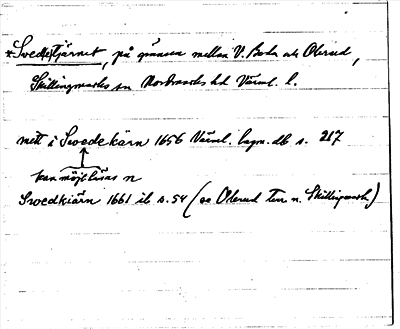 *Swed(e)tjärnet, på gränsen mellan V. Boda och Olerud,
Skillingmarks sn Nordmarks hd Värml. l.
mitt i Swedekärn 1656 Värml. lagm. db s. 217
kan möjl. läsas n
Swedkiärn 1661 ib s. 54 (se Olerud Skillingmark)